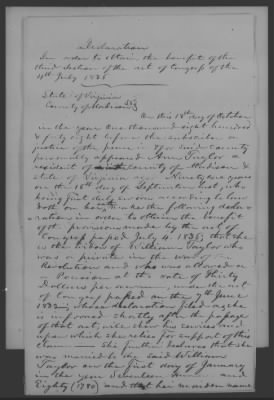 Declaration
In order to obtain the benefit of the
third section of the act of Congress of the
4th July 1836
State of Virginia
County of Madison SS
On this 18th day of October
in the year One thousand eight hundred
& forty eight before the subscriber a
justice of the peace in & for said county
personally appeared Ann Taylor a
resident of county of Madison &
state of Virginia aged Ninety one years
on the 16th day of September last, who
being first duly sworn according to law
doth on her oath make the following decla-
ration in order to obtain the benefit
of the provision made by the act of
Congress passed July 4, 1836; that she
is the widow of William Taylor who
was a private in the war of the
Revolution and who was allowed a
Pension at the rate of Thirty
Dollars per annum, under the act
of Congress passed on the 7th June
1832, whose declaration filed as she
is informed shortly after the passage
of that act, will show his services and
upon which she relies for support of this
claim. She further declares that she
was married to the said William
Taylor on the first day of January
in the year Seventeen hundred and
Eighty (1780) and that her maiden name